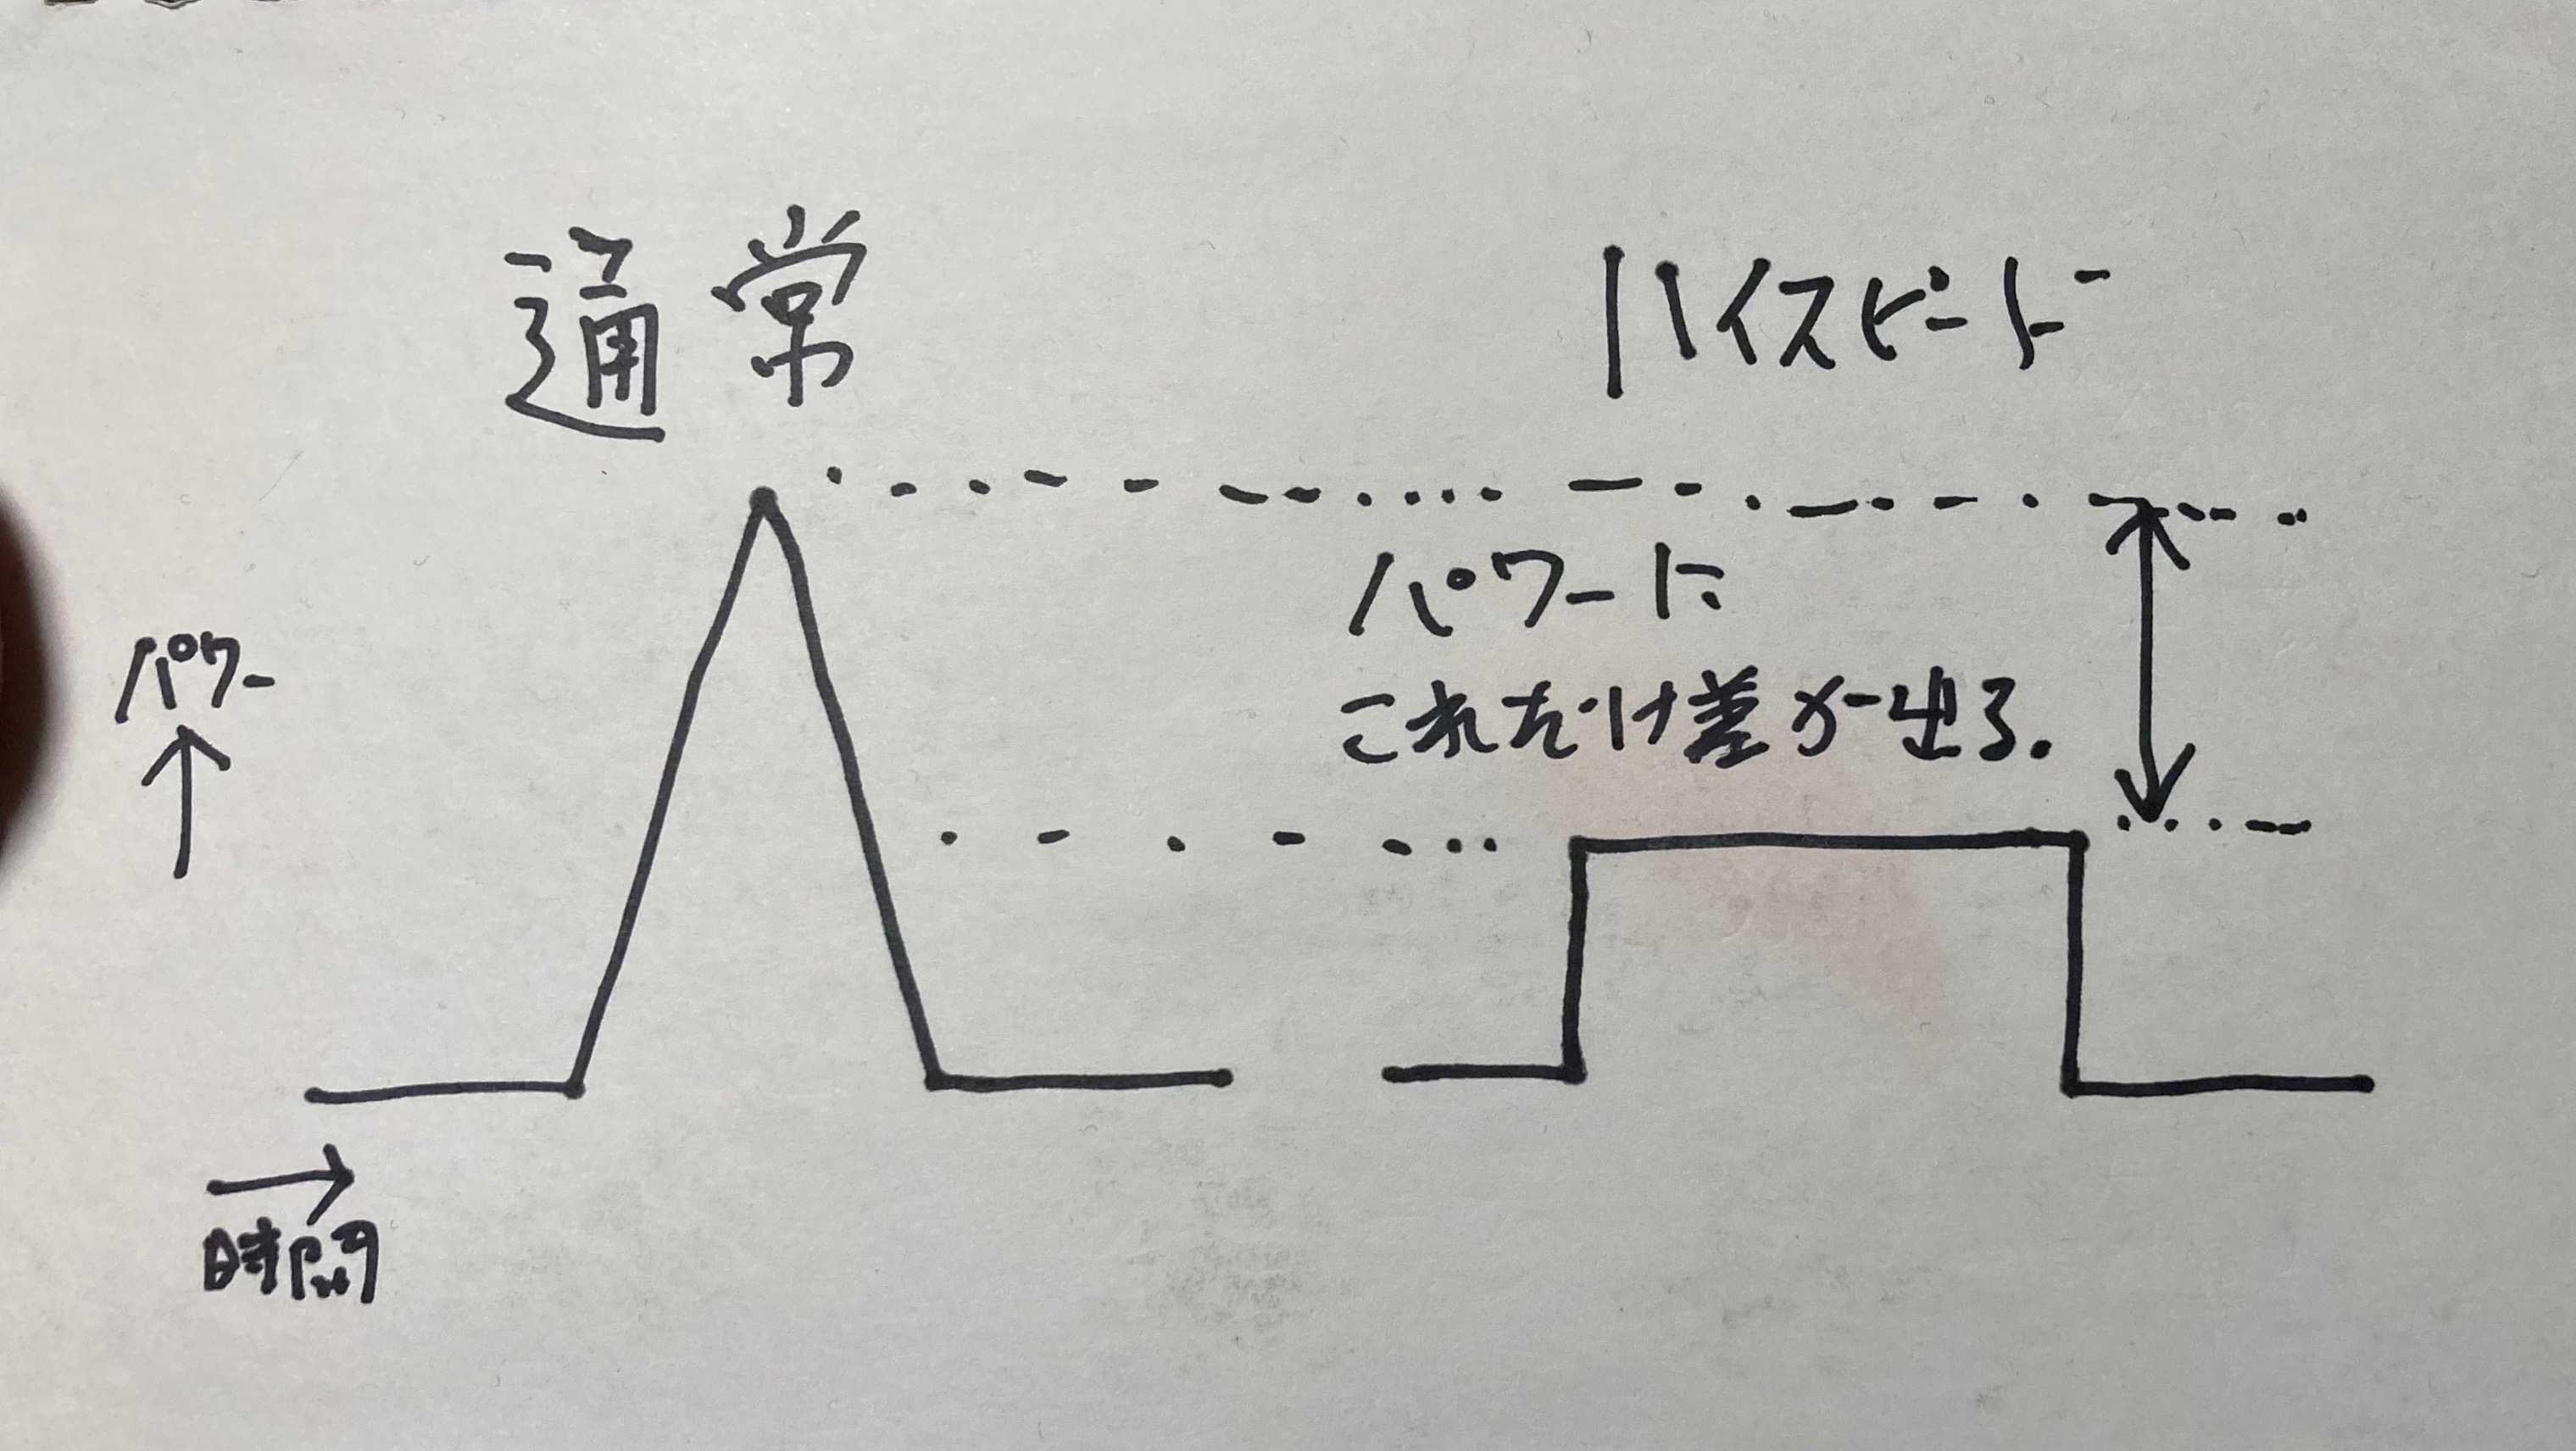 通常
ハイスピード
パワーに
これだけ差が出る.
パワー
時間